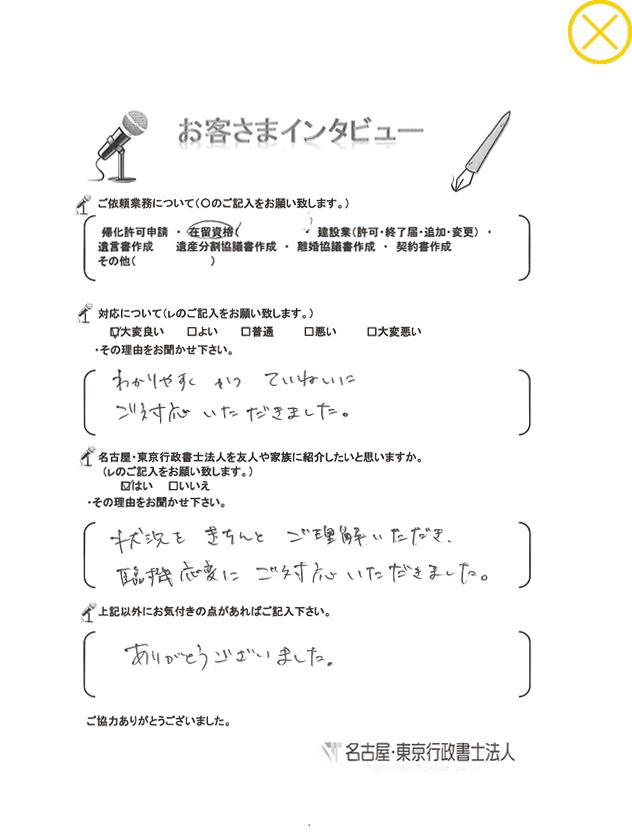 お客さまインタビュー
ご依頼業務について(〇のご記入をお願い致します。)
帰化許可申請 ・ 在留資格( ・ 建設業(許可・終了届・追加・変更) ・
遺言書作成 遺産分割協議書作成 ・ 離婚協議書作成 ・ 契約書作成
その他( )
対応について(レのご記入をお願い致します。)
☑大変良い □よい □普通 □悪い □大変悪い
・その理由をお聞かせ下さい。
わかりやすく かつ ていねいに
ご対応いただきました。
名古屋・東京行政書士法人を友人や家族に紹介したいと思いますか。
(レのご記入をお願い致します。)
☑はい □いいえ
・その理由をお聞かせ下さい。
状況を きちんと ご理解いただき、
臨機応変に ご対応いただきました。
上記以外にお気付きの点があればご記入下さい。
ありがとうございました。
ご協力ありがとうございました。
名古屋・東京行政書士法人